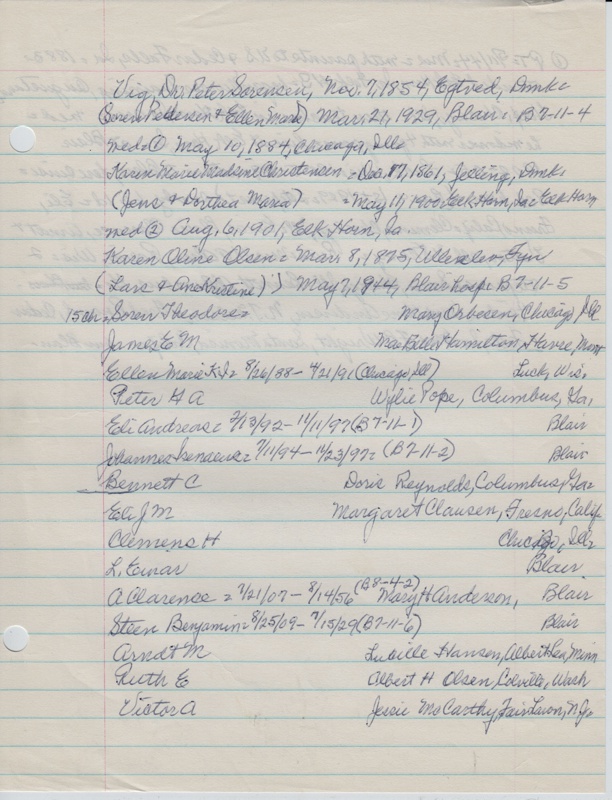 Vig, Dr. Peter Sorensen, Nov. 7, 1854, Egtved, Dmk.
(Soren Pedersen & Ellen Marie) Mar. 21, 1929, Blair. B7-11-4
med ① May 10, 1884, Chicago, Ill.
Karen Marie Mabine Christensen = Dec. 17, 1861, Jelling, Dmk.
(Jens & Dorthea Maria) = May 11, 1900, Elk Horn, Ia. Elk Horn
med ② Aug. 6, 1901, Elk Horn, Ia
Karen Oline Olsen = Mar. 8, 1875, Ullerslev, Fyn
(Lars & Ane Kristine) May 7, 1944, Blair hosp. B7-11-5
15 ch. Soren Theodore = Mary Orbesen, Chicago, Ill
James E M Mae Ellen Hamilton, Havre, Mont
Ellen Marie K. J. = 8/26/88 - 4/21/91 (Chicago, Ill) Luck, Wis.
Peter G A Wylie Pope, Columbus, Ga.
Eli Andreas = 2/13/92 - 11/11/97 (B7-11-1) Blair
Johannes Irenaeus = 7/11/94 - 11/23/97 = (B7-11-2) Blair
Bennett C Doris Reynolds, Columbus, Ga.
Eli J M Margaret Clausen, Fresno, Calif.
Clemens H Chicago, Ill.
L. Einar Blair
A Clarence = 7/21/07 - 8/14/56 (B8-4-2) Mary H Anderson, Blair
Steen Benjamin = 8/25/09 - 7/15/29 (B7-11-6) Blair
Arndt M Lucille Hansen, Albert Lea, Minn
Ruth E Albert H Olsen, Colville, Wash
Victor A Jessie McCarthy, Fair Lawn, N.J.